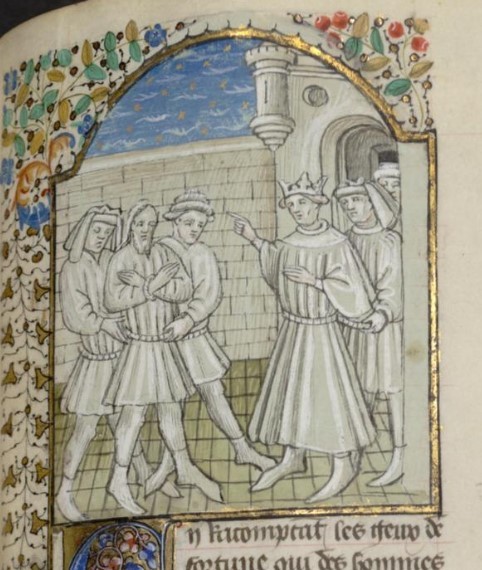 En racomptāt les ieux de
fortune qui des hommes